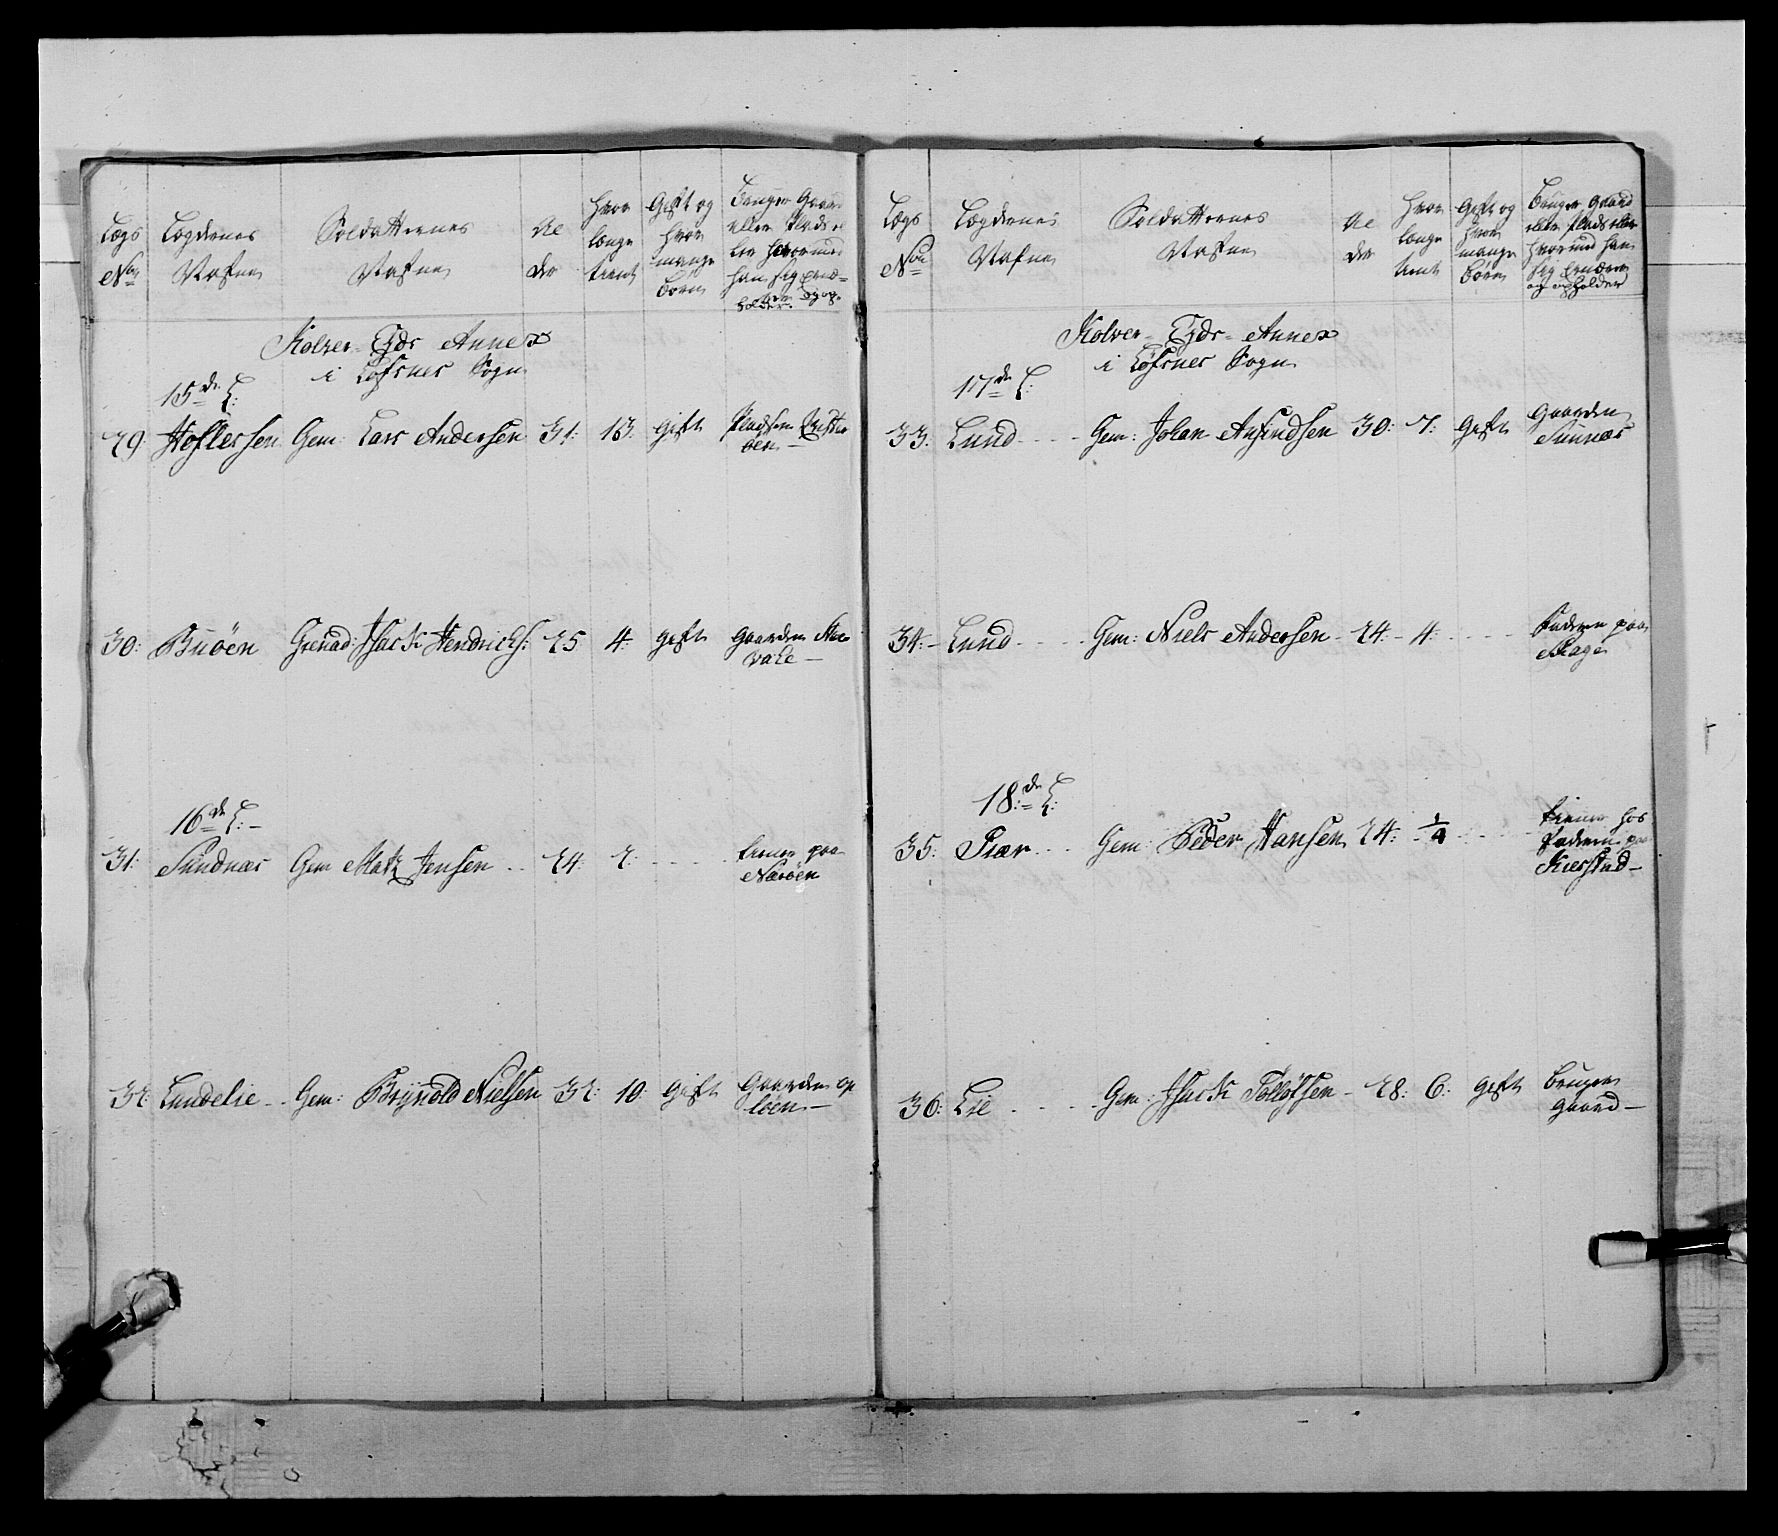 Lægs
No
Lægdernes
Nafne
Soldatternes
Nafne
Al
der
hvor
længe
tient
Gift og
hvor
mange
Børn
Bruger Gaard
eller Plads el
ler hvormed
han sig ernæ-
rer og op-
holder
Kolver-Eyds Annex
i Løfsnes Sogn
15de L:
29 Hoflersen Gem: Lars Andersen 31: 13: gift Pladsen
øen
30: Buøen Grenad: Isack Hendrichs: 25 4: gift Gaarden
vale
16de L:
31: Sundnæs Gem Matz Jensen 24: 2: tiener paa
Nærøen
32: Lundelie Gem: Brynold Nielsen 32: 10: gift Gaarden op
løen
Lægs
No
Lægdernes
Nafne
Soldatternes
Nafne
Al
der
hvor
længe
tient
Gift og
hvor
mange
Børn
Bruger Gaard
eller Plads eller
hvormed han
sig ernærer
og opholder
Kolver-Eyds-Annex
i Løfsnes Sogn
17de L:
33: Lund Gem: Johan Amundsen 30: 7: gift Gaarden
Sunnæs
34: Lund Gem: Niels Andersen 24: 4: Faderen paa
Skage
18: de L:
35: Gem: Peder Hansen 24: 1/4 tiener hos
Faderen paa
Kierstad
36: Lie Gem: Isack Tollofsen 28: 6: gift Bruger
Gaard